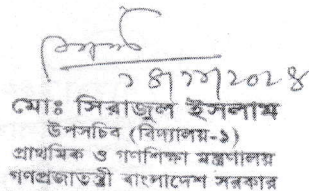 ২৪/১১/২০২৪
মোঃ সিরাজুল ইসলাম
উপসচিব (বিদ্যালয়-১)
প্রাথমিক ও গণশিক্ষা মন্ত্রণালয়
গণপ্রজাতন্ত্রী বাংলাদেশ সরকার